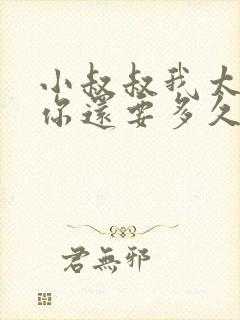 小叔叔我太
你還要多久
君無邪